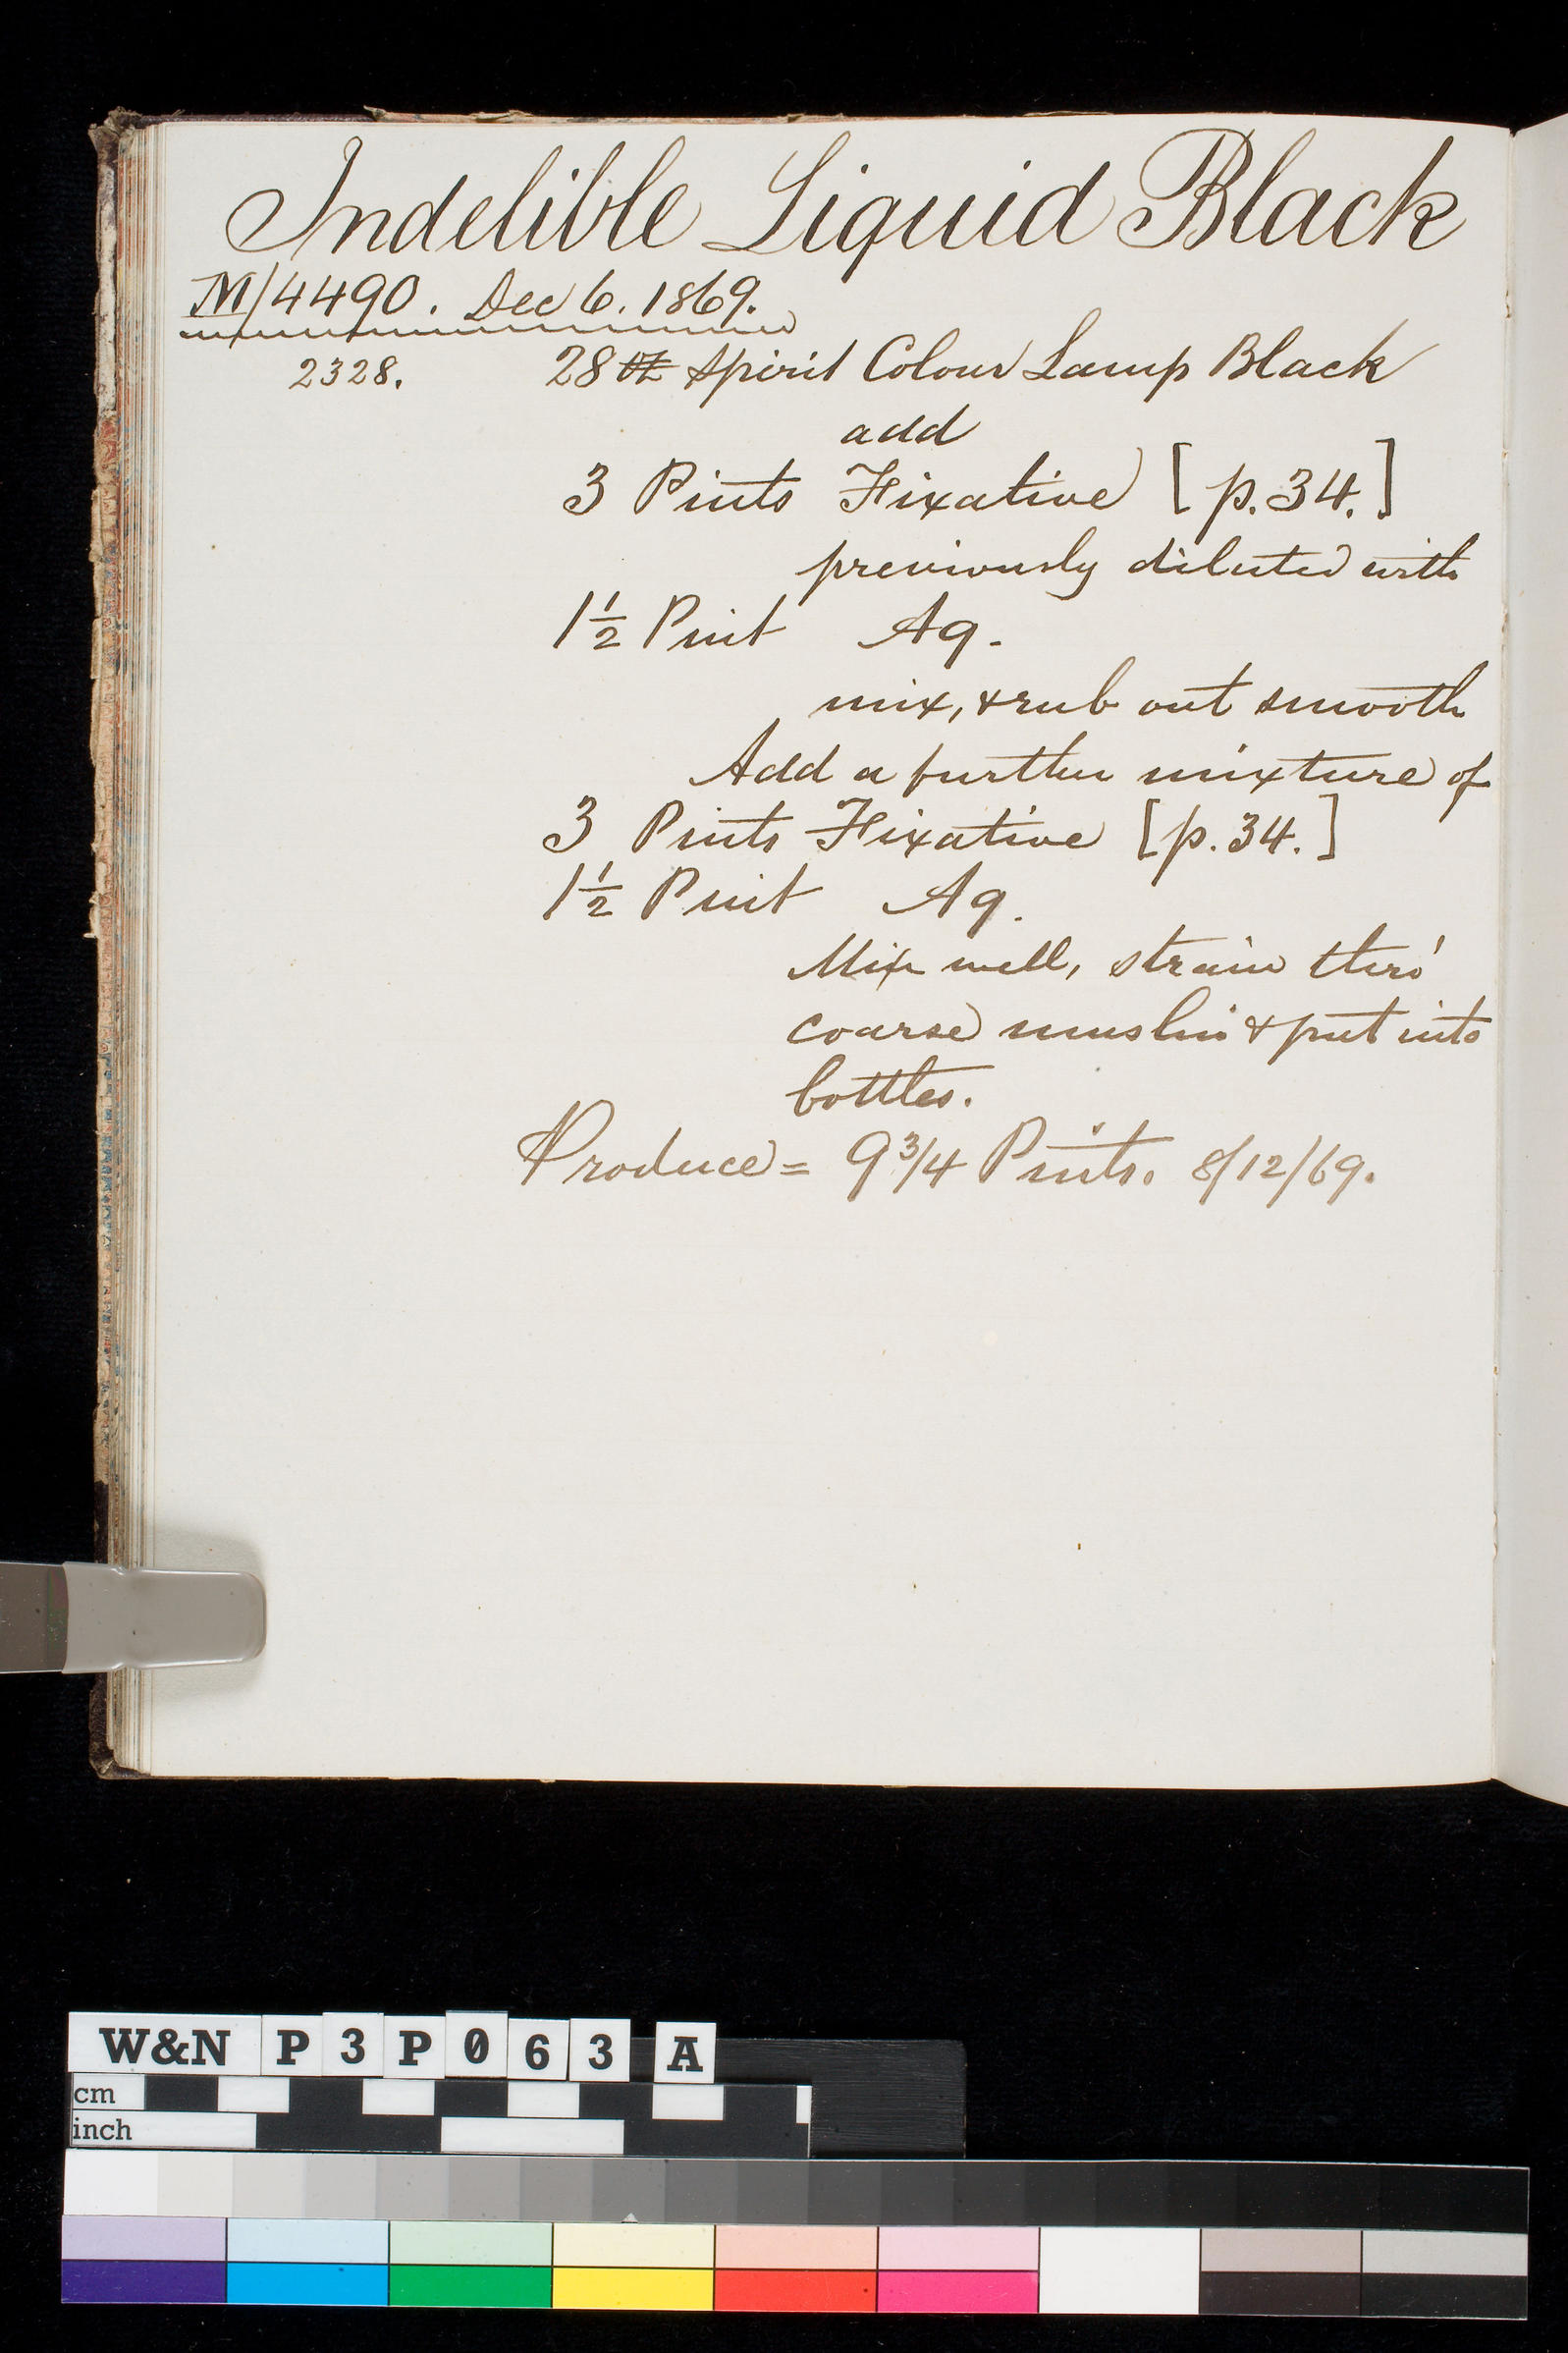 Indelible Liquid Black
M/4490. Dec 6. 1869.
2328. 28 oz Spirit Colour Lamp Black
add
3 Pints Fixative [p.34.]
previously diluted with
1½ Pint Aq.
mix, & rub out smooth
Add a further mixture of
3 Pints Fixative [p.34.]
1½ Pint Aq.
Mix well, strain thro'
coarse muslin & put into
bottles.
Produce = 9 3/4 Pints. 8/12/69.
W&N P3P063 A
cm
inch